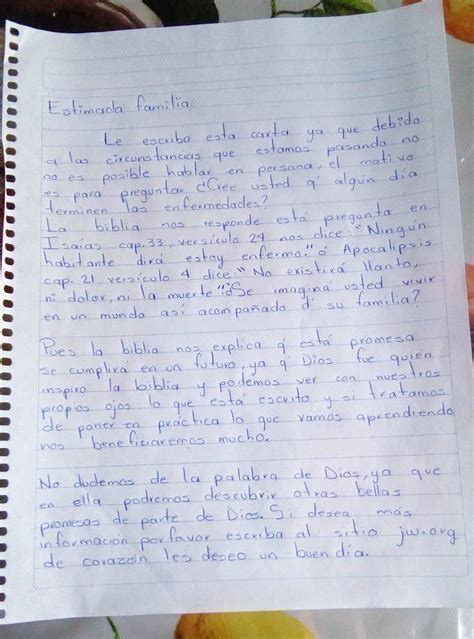 Estimada familia:
Le escriba esta carta ya que debido
a las circunstancias que estamos pasando no
no es posible hablar en persona, el motivo
es para preguntar ¿Cree usted q' algún día
terminen las enfermedades?
La biblia nos responde está pregunta en
Isaias cap. 33, versículo 24 nos dice: "Ningún
habitante dirá estoy enfermo." ó Apocalipsis
cap. 21 versículo 4 dice: "No existirá llanto,
ni dolor, ni la muerte" ¿Se imagina usted vivir
en un mundo así acompañado d' su familia?
Pues la biblia nos explica q' está promesa
se cumplirá en un futuro, ya q' Dios fue quién
inspiro la biblia y podemos ver con nuestros
propios ojos lo que está escrito y si tratamos
de poner en práctica lo que vamos aprendiendo
nos beneficiaremos mucho.
No dudemos de la palabra de Dios, ya que
en ella podremos descubrir otras bellas
promesas de parte de Dios. Si desea más
información por favor escriba al sitio jw.org
de corazón les deseo un buen día.